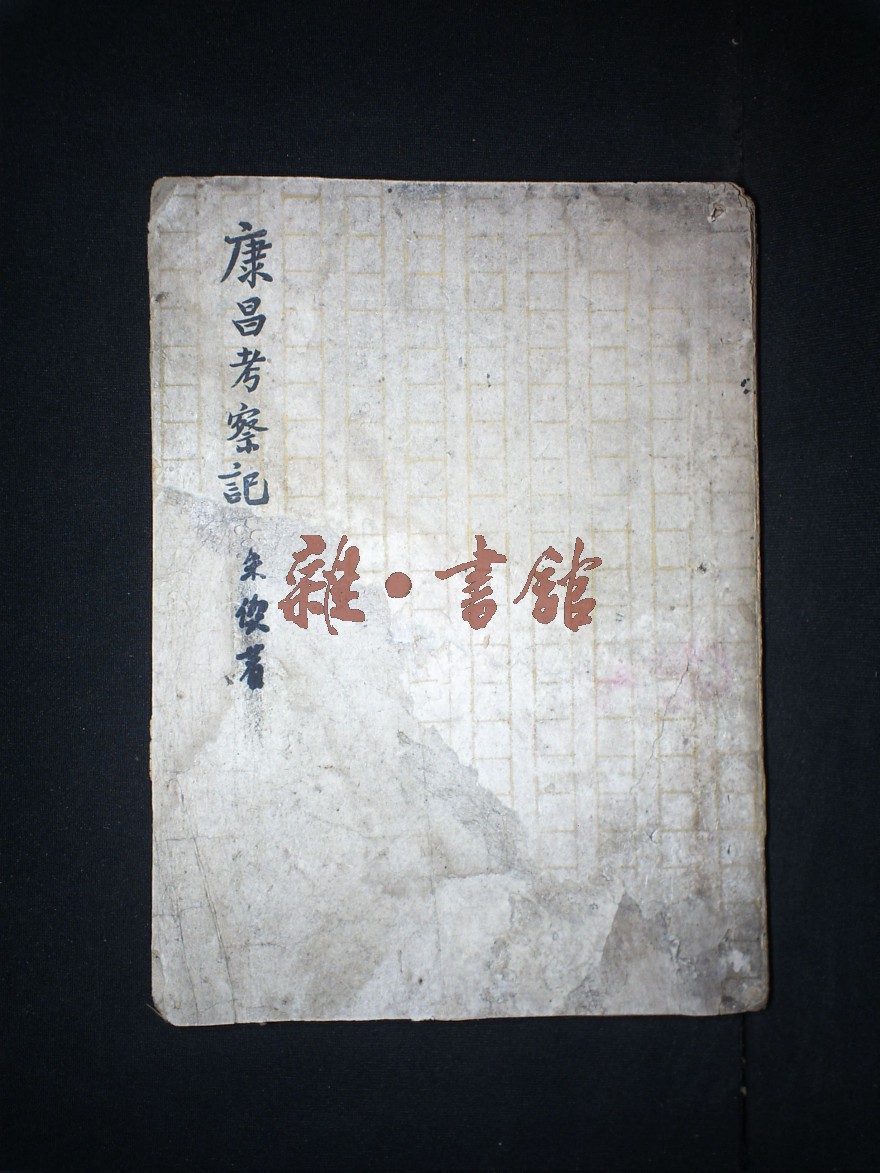 康昌考察記
朱偰著
雜·書舘